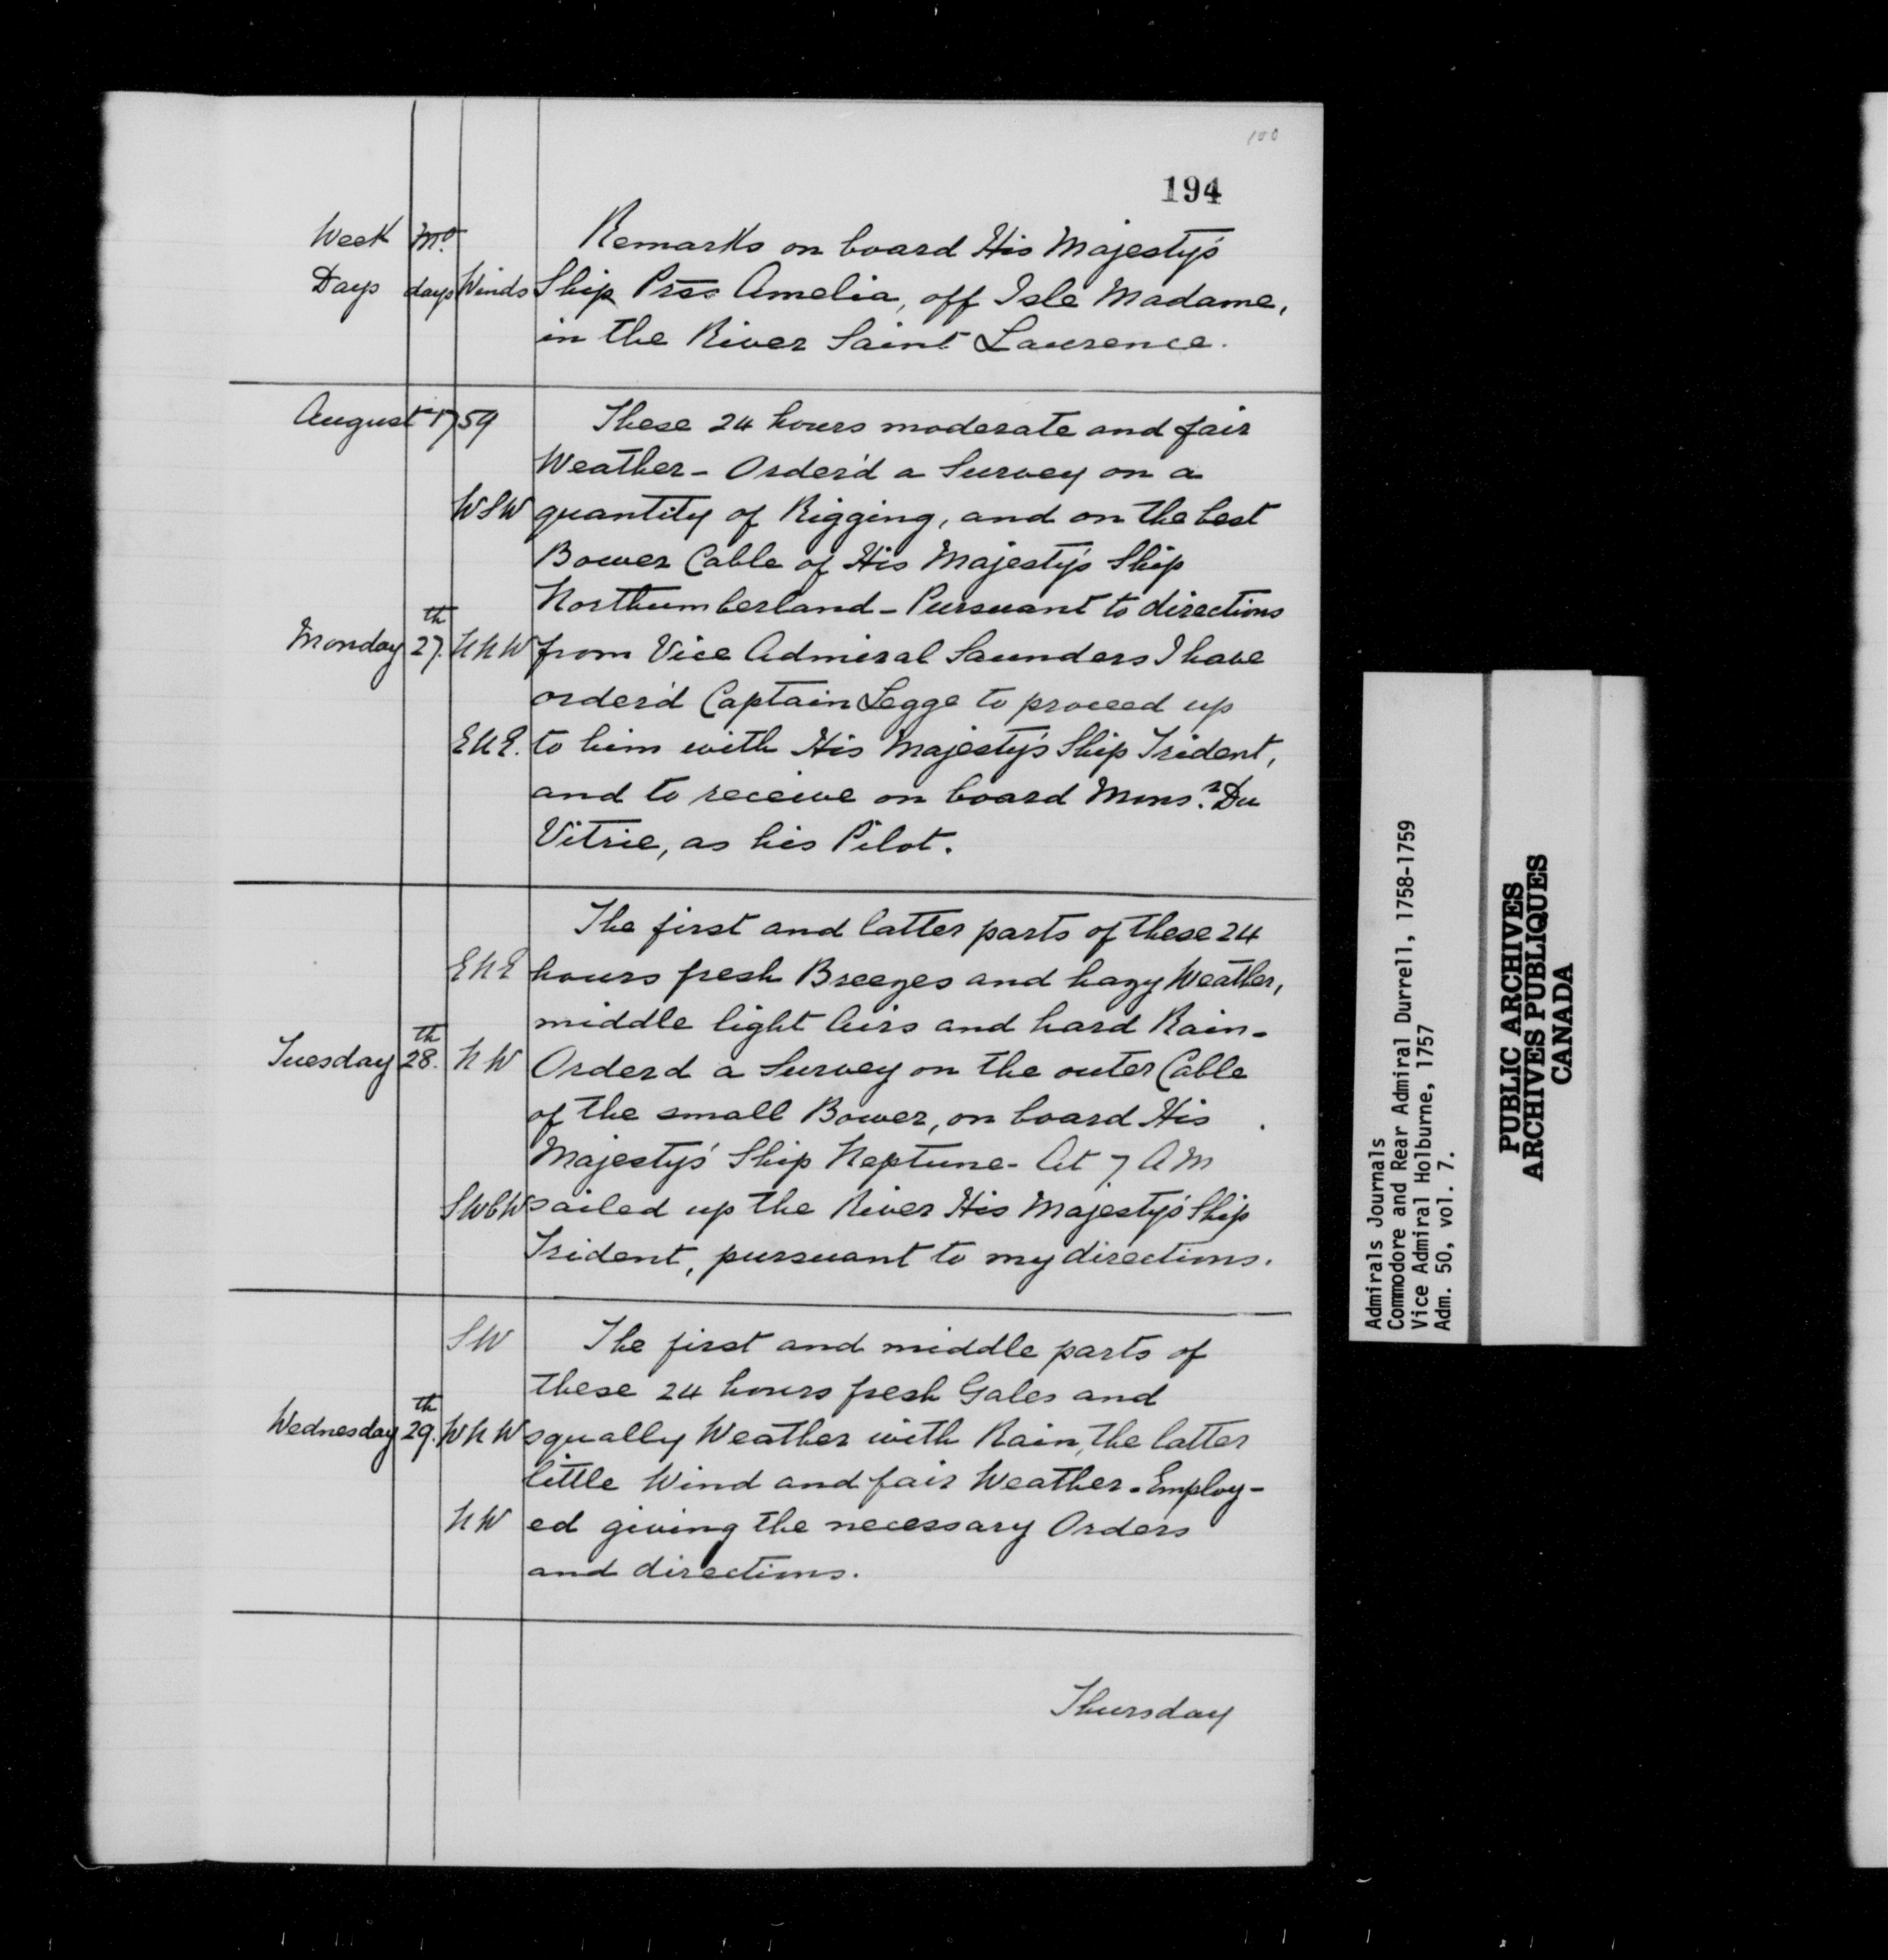 194
Week Mo. Remarks on board His Majesty's
Days days Winds Ship Prss Amelia, off Isle Madame,
in the River Saint Laurence.
August 1759 These 24 hours moderate and fair
Weather - Order'd a Survey on a
WSW quantity of Rigging, and on the best
Bower Cable of His Majesty's Ship
Northumberland - Pursuant to directions
Monday 27th. NNW from Vice Admiral Saunders I have
order'd Captain Legge to proceed up
ENE. to him with His Majesty's Ship Trident,
and to receive on board Monsr. Du
Vitrie, as his Pilot.
The first and latter parts of these 24
ENE hours fresh Breezes and hazy Weather,
middle light Airs and hard Rain -
Tuesday 28th. NW Orderd a Survey on the outer Cable
of the small Bower, on board His
Majesty's Ship Neptune - At 7 AM
SWbW sailed up the River His Majesty's Ship
Trident, pursuant to my directions.
SW The first and middle parts of
these 24 hours fresh Gales and
Wednesday 29th. WNW squally Weather with Rain, the latter
little Wind and fair Weather - Employ-
NW ed giving the necessary Orders
and directions.
Thursday
Admirals Journals
Commodore and Rear Admiral Durrell, 1758-1759
Vice Admiral Holburne, 1757
Adm. 50, vol. 7.
PUBLIC ARCHIVES
ARCHIVES PUBLIQUES
CANADA